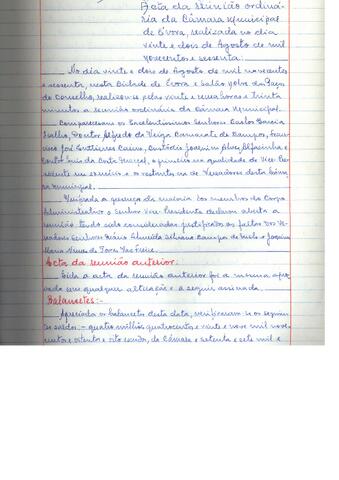 Acta da reunião ordiná-
ria da Câmara Municipal
de Évora, realizada no dia
vinte e dois de Agosto de mil
novecentos e sessenta:
No dia vinte e dois de Agosto de mil novecentos
e sessenta, nesta Cidade de Évora e Salão Nobre dos Paços
do Concelho, realizou-se pelas vinte e uma horas e trinta
minutos a reunião ordinária da Câmara Municipal.
Compareceram os Excelentíssimos Senhores Carlos Garcia
Doutor Alfredo da Veiga de Campos, Fran-
cisco José Caeiro, Custódio Joaquim Alves e
Luís da Costa o primeiro na qualidade de Vice-Pre-
sidente em exercício e os restantes na de Vereadores desta Câma-
ra Municipal.
Verificada a presença da maioria dos membros do Corpo
Administrativo o Senhor Vice-Presidente declarou aberta a
reunião, tendo sido consideradas justificadas as faltas dos Ve-
readores Senhores Mário e Joaquim
Acta da reunião anterior:
Lida a acta da reunião anterior foi a mesma apro-
vada sem qualquer alteração e a seguir assinada.
Balancetes:-
Apreciados os balancetes desta data, verificaram-se os seguin-
tes saldos:- quatro milhões quatrocentos e vinte e nove mil nove-
centos e oitenta e oito escudos, da Câmara e setenta e sete mil e